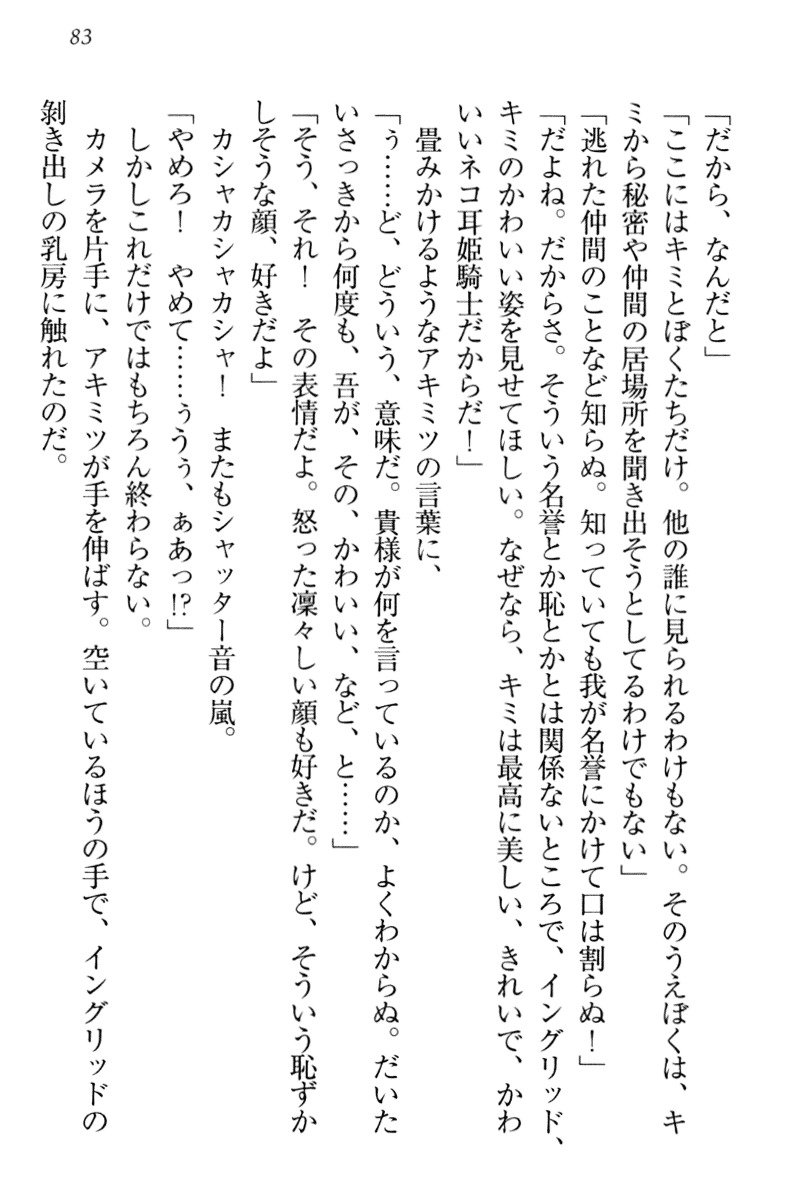 83
「だから、なんだと」
「ここにはキミとぼくたちだけ。他の誰に見られるわけもない。そのうえぼくは、キ
ミから秘密や仲間の居場所を聞き出そうとしてるわけでもない」
「逃れた仲間のことなど知らぬ。知っていても我が名誉にかけて口は割らぬ！」
「だよね。だからさ。そういう名誉とか恥とかとは関係ないところで、イングリッド、
キミのかわいい姿を見せてほしい。なぜなら、キミは最高に美しい、きれいで、かわ
いいネコ耳姫騎士だからだ！」
畳みかけるようなアキミツの言葉に、
「ぅ……ど、どういう、意味だ。貴様が何を言っているのか、よくわからぬ。だいた
いさっきから何度も、吾が、その、かわいい、など、と……」
「そう、それ！　その表情だよ。怒った凛々しい顔も好きだ。けど、そういう恥ずか
しそうな顔、好きだよ」
カシャカシャカシャ！　またもシャッター音の嵐。
「やめろ！　やめて……ぅうぅ、ぁあっ!?」
しかしこれだけではもちろん終わらない。
カメラを片手に、アキミツが手を伸ばす。空いているほうの手で、イングリッドの
剝き出しの乳房に触れたのだ。